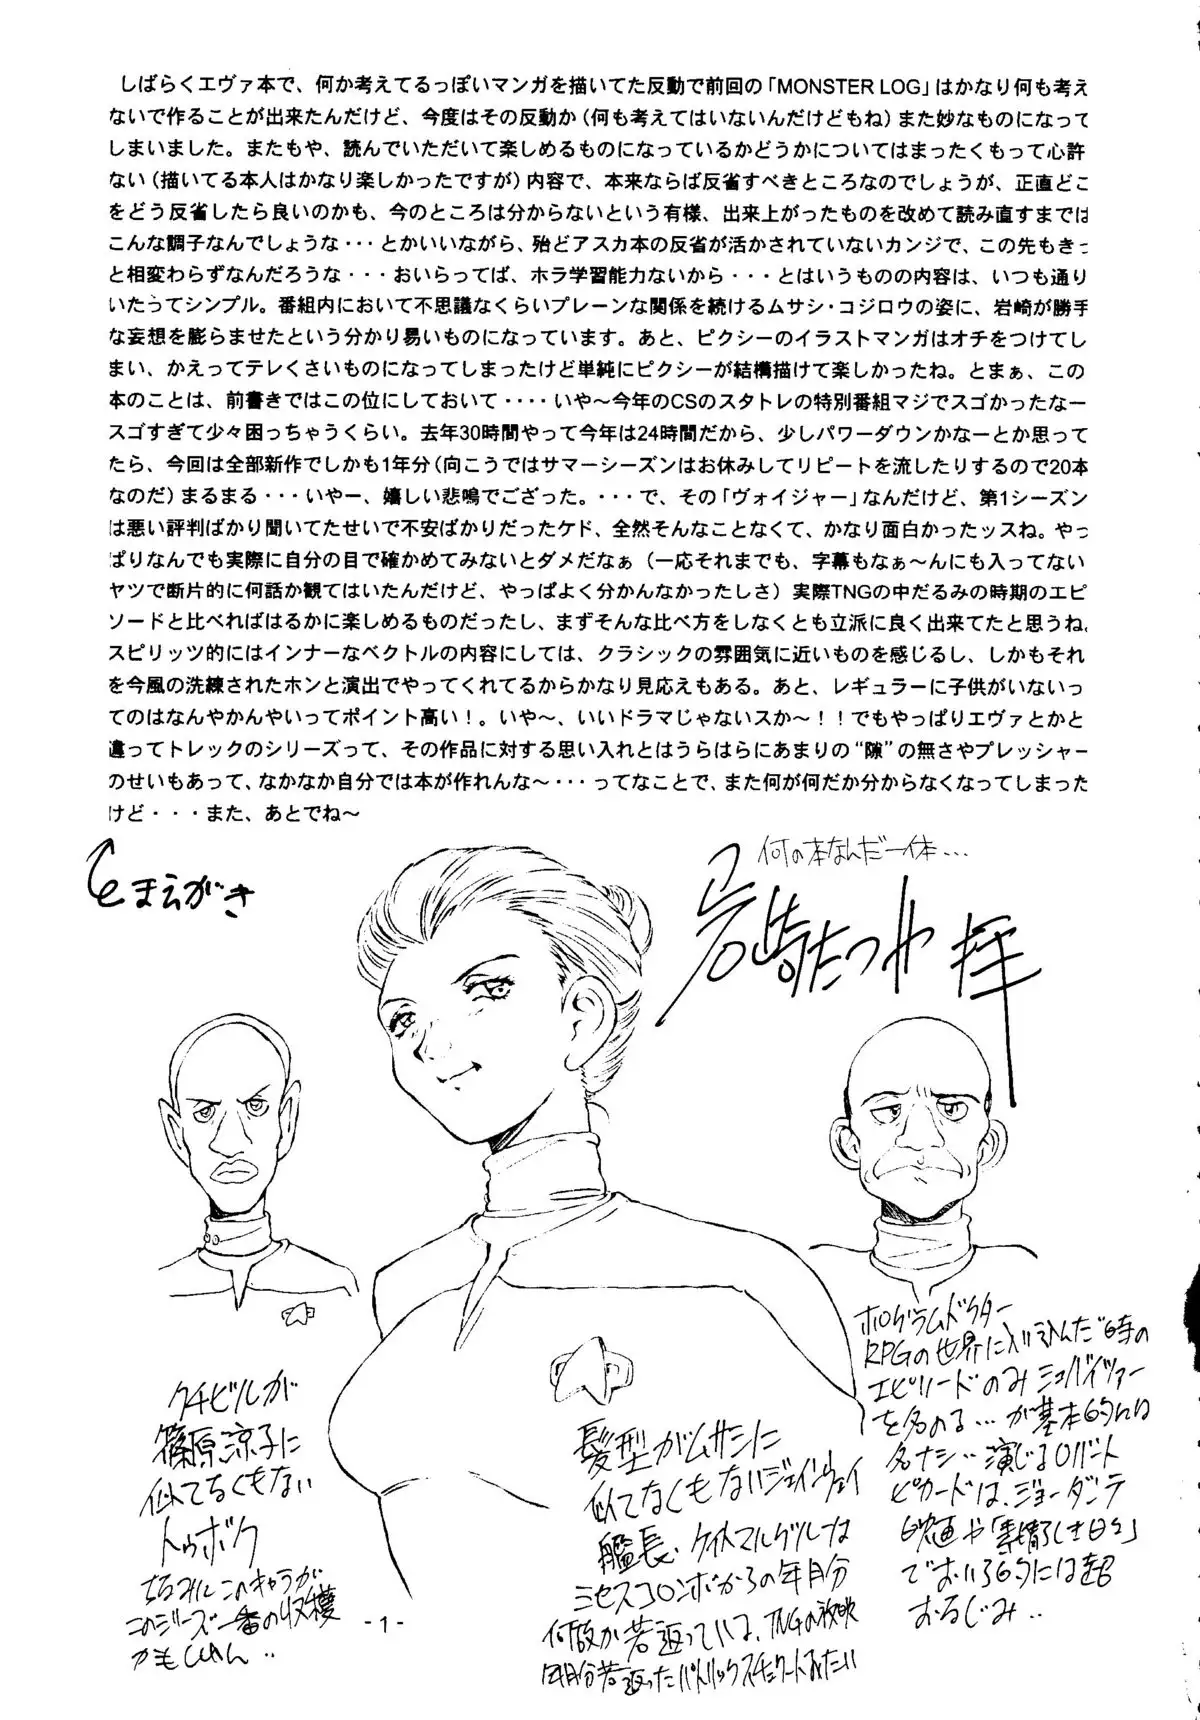 しばらくエヴァ本で、何か考えてるっぽいマンガを描いてた反動で前回の「MONSTER LOG」はかなり何も考え
ないで作ることが出来たんだけど、今度はその反動か（何も考えてはいないんだけどもね）また妙なものになって
しまいました。またもや、読んでいただいて楽しめるものになっているかどうかについてはまったくもって心許
ない（描いてる本人はかなり楽しかったですが）内容で、本来ならば反省すべきところなのでしょうが、正直どこ
をどう反省したら良いのかも、今のところは分からないという有様、出来上がったものを改めて読み直すまでは
こんな調子なんでしょうな・・・とかいいながら、殆どアスカ本の反省が活かされていないカンジで、この先もきっ
と相変わらずなんだろうな・・・おいらってば、ホラ学習能力ないから・・・とはいうものの内容は、いつも通り
いたってシンプル。番組内において不思議なくらいプレーンな関係を続けるムサシ・コジロウの姿に、岩崎が勝手
な妄想を膨らませたという分かり易いものになっています。あと、ピクシーのイラストマンガはオチをつけてし
まい、かえってテレくさいものになってしまったけど単純にピクシーが結構描けて楽しかったね。とまぁ、この
本のことは、前書きではこの位にしておいて・・・・いや〜今年のCSのスタトレの特別番組マジでスゴかったなー
スゴすぎて少々困っちゃうくらい。去年30時間やって今年は24時間だから、少しパワーダウンかなーとか思って
たら、今回は全部新作でしかも1年分（向こうではサマーシーズンはお休みしてリピートを流したりするので20本
なのだ）まるまる・・・いやー、嬉しい悲鳴でござった。・・・で、その「ヴォイジャー」なんだけど、第1シーズン
は悪い評判ばかり聞いてたせいで不安ばかりだったケド、全然そんなことなくて、かなり面白かったッスね。やっ
ぱりなんでも実際に自分の目で確かめてみないとダメだなぁ（一応それまでも、字幕もなぁ〜んにも入ってない
ヤツで断片的に何話か観てはいたんだけど、やっぱよく分かんなかったしさ）実際TNGの中だるみの時期のエピ
ソードと比べればはるかに楽しめるものだったし、まずそんな比べ方をしなくとも立派に良く出来てたと思うね。
スピリッツ的にはインナーなベクトルの内容にしては、クラシックの雰囲気に近いものを感じるし、しかもそれ
を今風の洗練されたホンと演出でやってくれてるからかなり見応えもある。あと、レギュラーに子供がいないっ
てのはなんやかんやいってポイント高い！。いや〜、いいドラマじゃないスか〜！！でもやっぱりエヴァとかと
違ってトレックのシリーズって、その作品に対する思い入れとはうらはらにあまりの“隙”の無さやプレッシャー
のせいもあって、なかなか自分では本が作れんな〜・・・ってなことで、また何が何だか分からなくなってしまった
けど・・・また、あとでね〜
とまえがき
何の本なんだ一体...
岩崎たつや 拝
クチビルが
篠原涼子に
似てなくもない
トゥボク
ちなみに このキャラが
このシリーズ一番の収穫
かもしれん..
髪型がムサシに
似てなくもないジェインウェイ
艦長、ケイトマルグルーは
ミセスコロンボからの年月分
何故か若返っている、TNGの放映
年月分若返ったパトリックスチュワートみたい
ホログラムドクター
RPGの世界に入り込んだ時の
エピソードのみシュバイツァー
を名のる...が基本的には
名ナシ...演じるロバート
ピカードは、ジョーダンテ
映画や「素晴らしき日々」
でおいら的には超
おなじみ..
-1-